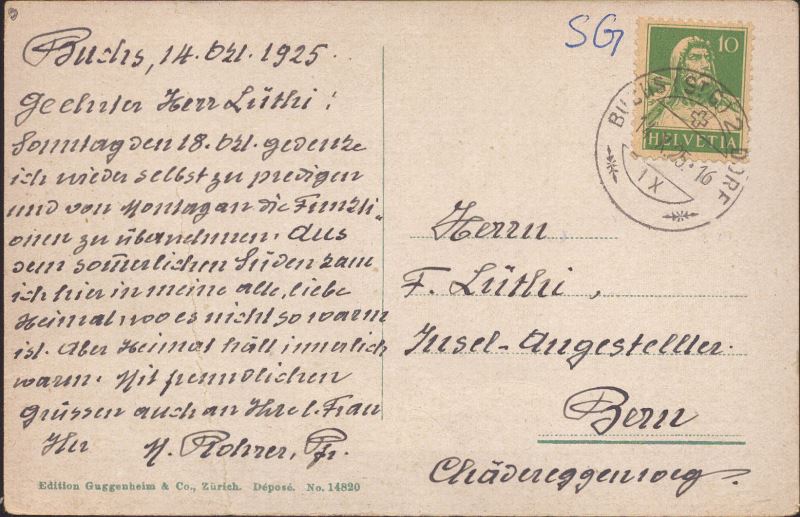 Buchs, 14. Okt. 1925.
Geehrter Herr Lüthi!
Sonntag den 18. Okt. gedenke
ich wieder selbst zu predigen
und von Montag an die Funkti-
onen zu übernehmen. Aus
dem sommerlichen Süden kam
ich hier in meine alte, liebe
Heimat, wo es nicht so warm
ist. Aber Heimat hält innerlich
warm. Mit freundlichen
Grüssen auch an Ihre l. Frau
Ihr M. Rohrer, Pfr.
Edition Guggenheim & Co., Zürich. Déposé. No. 14820
SG
10
HELVETIA
BUCHS (ST. G.) 2 DORF
IX
Herrn
F. Lüthi,
Insel-Angestellter.
Bern